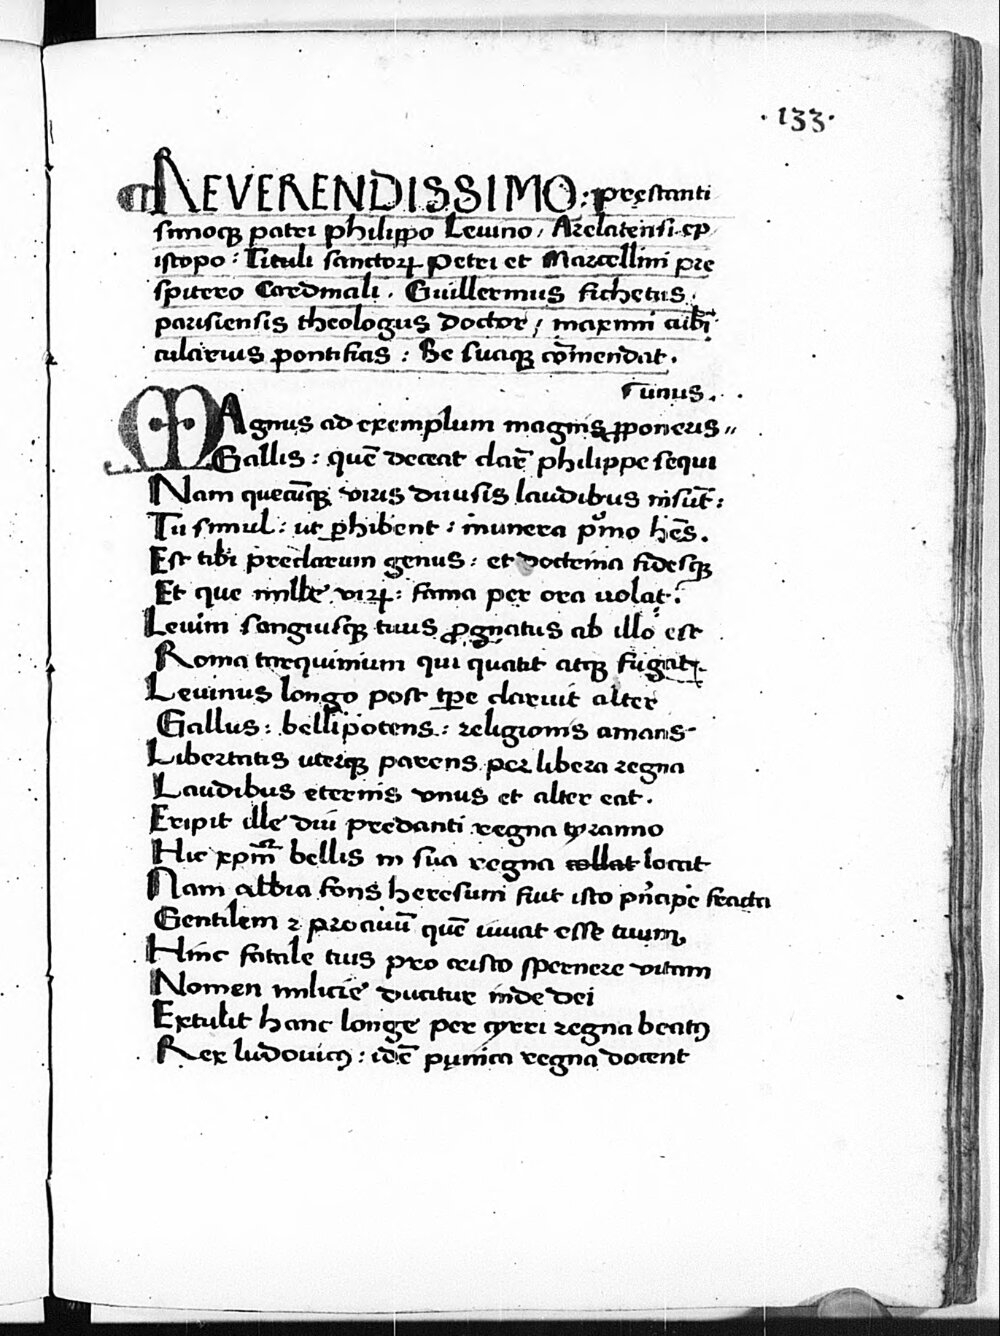 ·133·
REVERENDISSIMO: pręstanti
simoqꝫ patri philippo Leuino / Arelatensi ep
iscopo: Tituli sanctoꝝ Petri et Marcellini pre
spitero Cardinali. Guillermus fichetus
parisiensis theologus doctor / maximi cubi
cularius pontificis: Se suaqꝫ cõmendat.
Tunus.
MAgnus ad exemplum magnis ꝓponeris
Gallis: quẽ deceat clarẽ philippe sequi
Nam quecũqꝫ viris diuisis laudibus insũt:
Tu simul: ut ꝑhibent: munera pͥmo hẽs.
Est tibi preclarum genus: et doctrina fidesqꝫ
Et que mille viꝝ: fama per ora uolat.
Leuim sanguisqꝫ tuus ꝓgnatus ab illo est
Roma tarquinium qui quatit atqꝫ fugat
Leuinus longo post tp̃e claruit alter
Gallus: bellipotens: religionis amans
Libertatis uterqꝫ parens per libera regna
Laudibus eternis vnus et alter eat.
Eripit ille diui predanti regna tyranno
Hic xp̃m bellis in sua regna collat locat
Nam albia fons heresum fuit isto pñcipe fracta
Gentilem ⁊ proauũ quẽ iuuat esse tuum
Hinc fatale tuis pro cristo spernere vitam
Nomen milicie ducitur inde dei
Extulit hanc longe per cyrri regna beatꝯ
Rex ludouicꝯ: idẽ punica regna docent